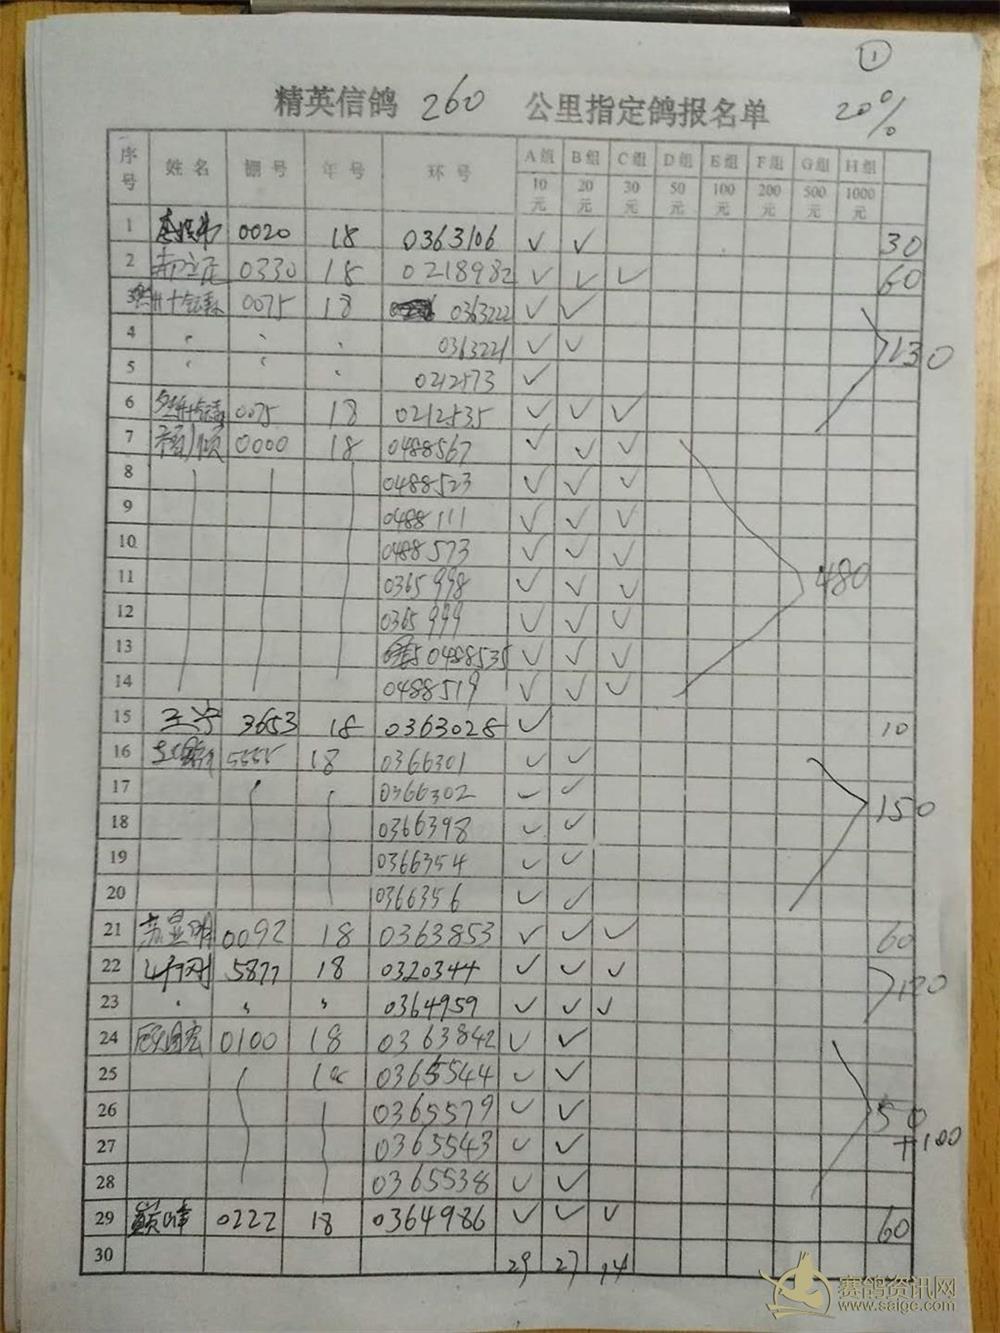 ①
精英信鸽 260 公里指定鸽报名单 20%
序号 姓名 棚号 年号 环号 A组 B组 C组 D组 E组 F组 G组 H组
10元 20元 30元 50元 100元 200元 500元 1000元
1 0020 18 0363106 ✓ ✓ 30
2 0330 18 0218982 ✓ ✓ ✓ 60
3 0075 18 0363222 ✓ ✓
4 0363221 ✓ ✓ 130
5 0212573 ✓
6 0075 18 0212535 ✓ ✓ ✓
7 0000 18 0488567 ✓ ✓ ✓
8 0488523 ✓ ✓ ✓
9 0488111 ✓ ✓ ✓
10 0488573 ✓ ✓ ✓
11 0365998 ✓ ✓ ✓ 480
12 0365999 ✓ ✓ ✓
13 0488535 ✓ ✓ ✓
14 0488519 ✓ ✓ ✓
15 王宁 3653 18 0363028 ✓ 10
16 5555 18 0366301 ✓ ✓
17 0366302 ✓ ✓ 150
18 0366398 ✓ ✓
19 0366354 ✓ ✓
20 0366356 ✓ ✓
21 0092 18 0363853 ✓ ✓ ✓ 60
22 5877 18 0320344 ✓ ✓ ✓ 120
23 0364959 ✓ ✓ ✓
24 0100 18 0363842 ✓ ✓
25 18 0365544 ✓ ✓
26 0365579 ✓ ✓ 50
27 0365543 ✓ ✓ +100
28 0365538 ✓ ✓
29 0222 18 0364986 ✓ ✓ ✓ 60
30 29 27 14
赛鸽资讯网
www.saigc.com